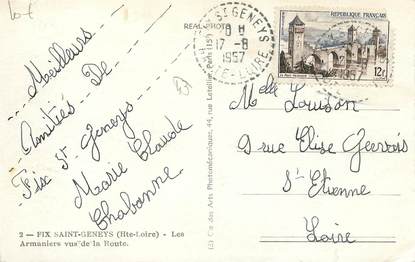 Lot
Meilleurs
Amitiés De
Fix St. Geneys
Marie Claude
Chabanne
2 — FIX SAINT-GENEYS (Hte-Loire) - Les
Armaniers vus de la Route.
REAL PHOTO
(2) Cie des Arts Photomécaniques, 44, rue Letellier, Paris (15e)
ST GENEYS
8 H
17-8
1957
HTE-LOIRE
REPUBLIQUE FRANÇAISE
12F
1957
Melle Louison
9 rue Elise Gervais
St Etienne
Loire